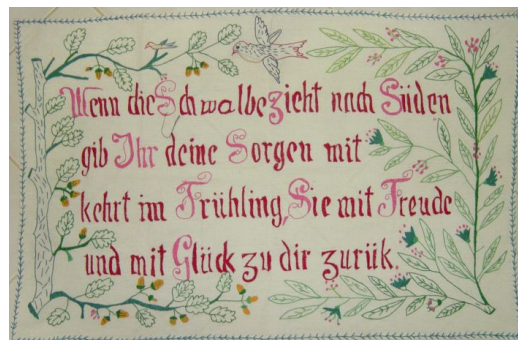 Wenn die Schwalbe zieht nach Süden
gib Ihr deine Sorgen mit
kehrt im Frühling, Sie mit Freude
und mit Glück zu dir zurük.